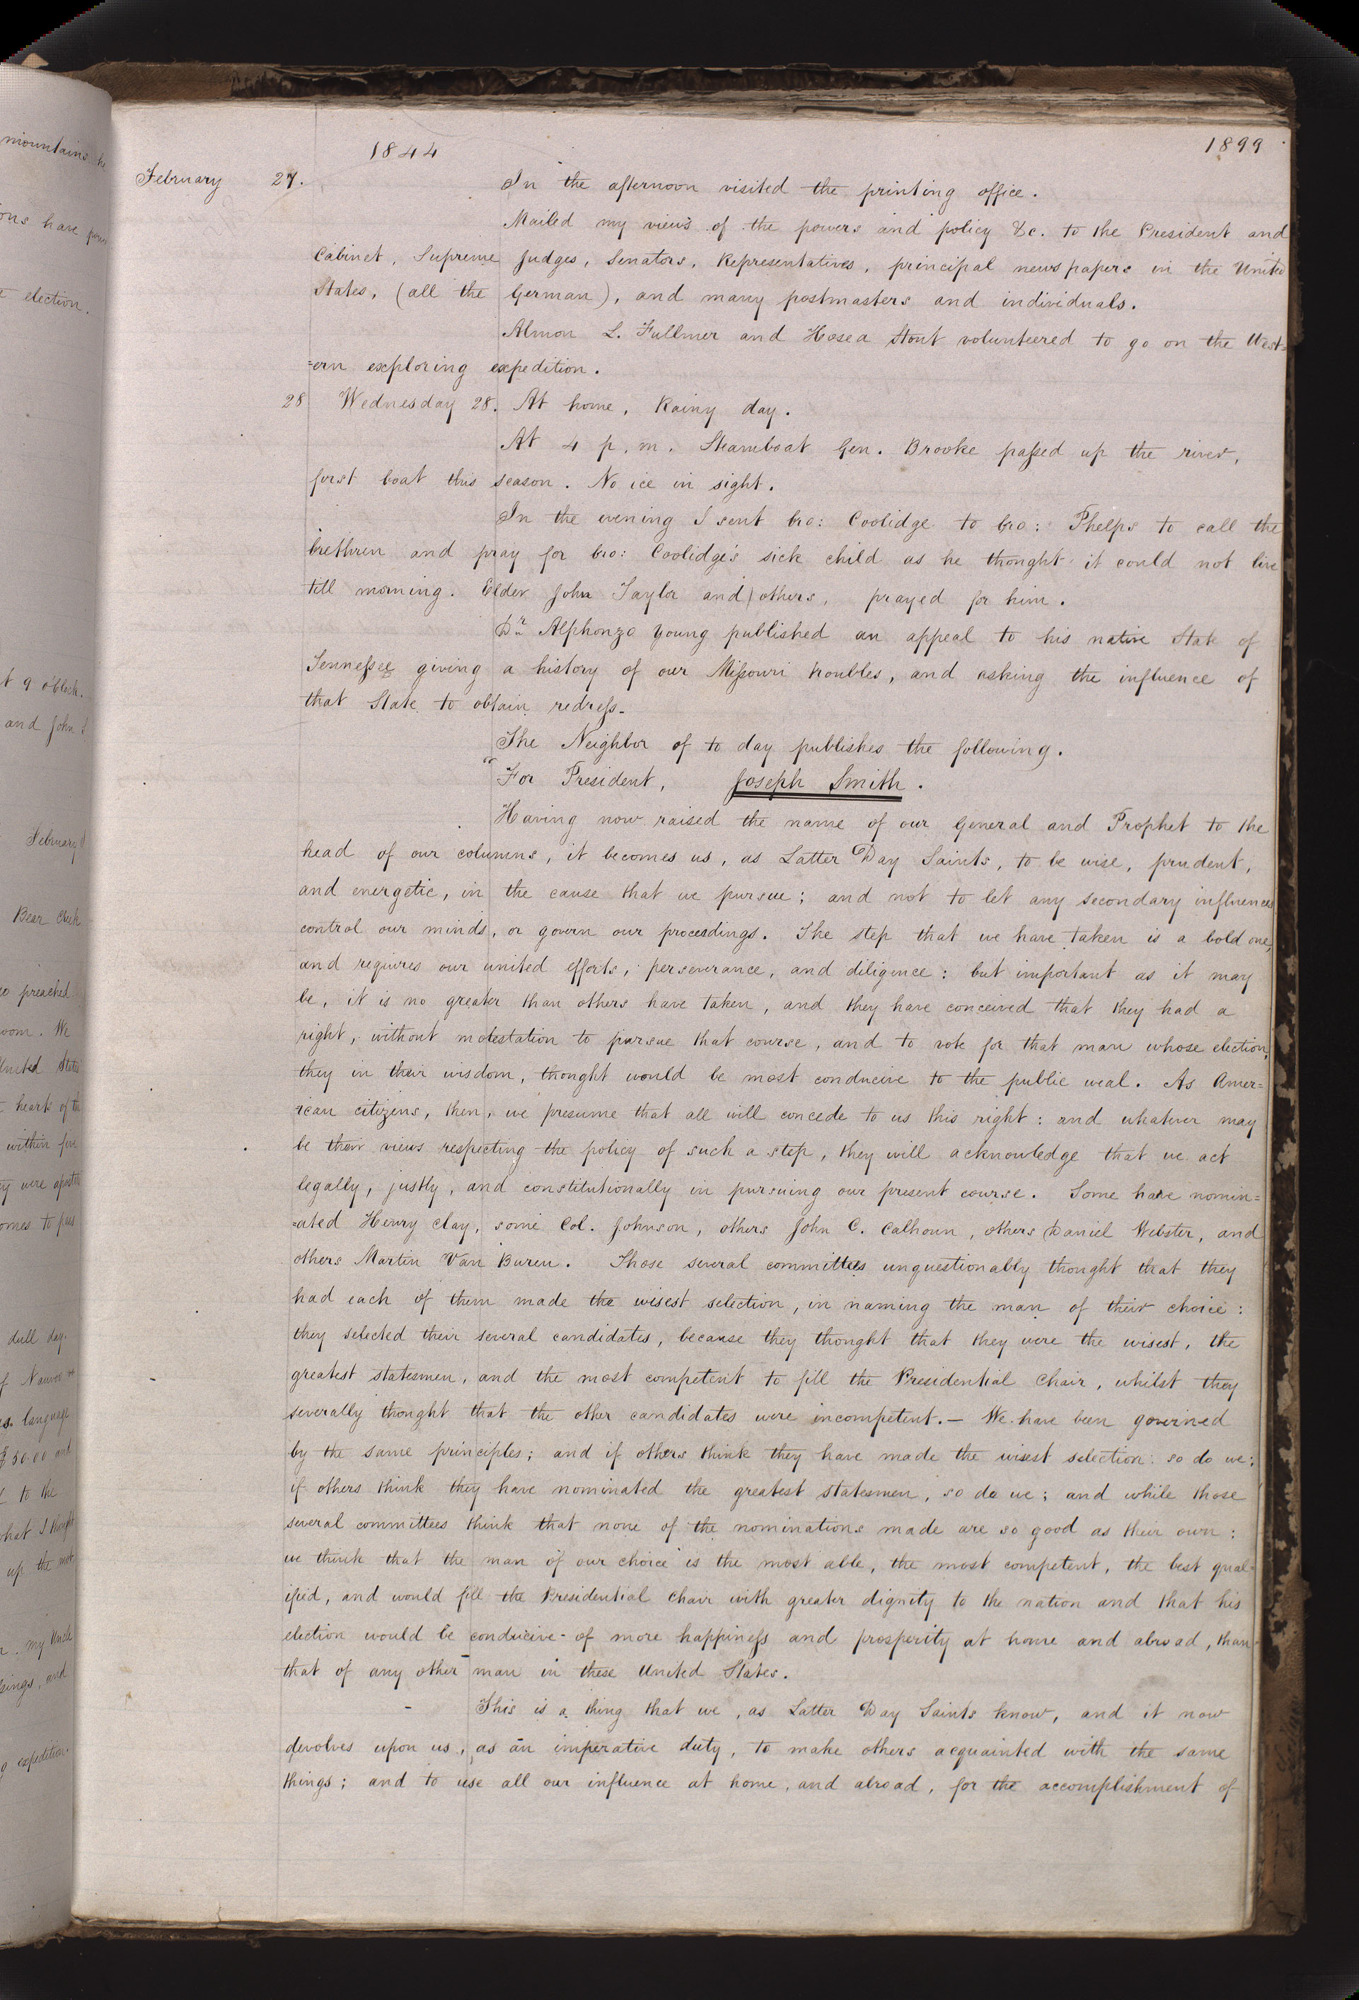 mountains he
ons have
election.
t 9 o'clock.
and John
February
Bear Creek
preached
room. We
United States
hearts of the
within five
were
omes to pass
dull day.
of Nauvoo
language
$50.00 and
to the
what I thought
up the
my Uncle
and
expedition.
1844 1899
February 27. In the afternoon visited the printing office.
Mailed my views of the powers and policy &c. to the President and
Cabinet, Supreme Judges, Senators, Representatives, principal newspapers in the United
States, (all the German), and many postmasters and individuals.
Almon L. Fullmer and Hosea Stout volunteered to go on the West=
=ern exploring expedition.
28 Wednesday 28. At home, Rainy day.
At 4 p.m. Steamboat Gen. Brooke paſsed up the river,
first boat this season. No ice in sight.
In the evening I sent bro: Coolidge to bro: Phelps to call the
brethren and pray for bro: Coolidge's sick child as he thought it could not live
till morning. Elder John Taylor and others, prayed for him.
Dr. Alphonzo Young published an appeal to his native State of
Tenneſsee giving a history of our Miſsouri troubles, and asking the influence of
that State to obtain redreſs.
The Neighbor of to day publishes the following.
"For President, Joseph Smith.
Having now raised the name of our General and Prophet to the
head of our columns, it becomes us, as Latter Day Saints, to be wise, prudent,
and energetic, in the cause that we pursue; and not to let any secondary influences
control our minds, or govern our proceedings. The step that we have taken is a bold one,
and requires our united efforts, perseverance, and diligence: but important as it may
be, it is no greater than others have taken, and they have conceived that they had a
right, without molestation to pursue that course, and to vote for that man whose election,
they in their wisdom, thought would be most conducive to the public weal. As Amer=
ican citizens, then, we presume that all will concede to us this right: and whatever may
be their views respecting the policy of such a step, they will acknowledge that we act
legally, justly, and constitutionally in pursuing our present course. Some have nomin=
=ated Henry Clay, some Col. Johnson, others John C. Calhoun, others Daniel Webster, and
others Martin Van Buren. Those several committees unquestionably thought that they
had each of them made the wisest selection, in naming the man of their choice:
they selected their several candidates, because they thought that they were the wisest, the
greatest statesmen, and the most competent to fill the Presidential Chair, whilst they
severally thought that the other candidates were incompetent.— We have been governed
by the same principles; and if others think they have made the wisest selection: so do we:
if others think they have nominated the greatest statesmen, so do we; and while those
several committees think that none of the nominations made are so good as their own:
we think that the man of our choice is the most able, the most competent, the best qual-
ified, and would fill the Presidential Chair with greater dignity to the nation and that his
election would be conducive of more happineſs and prosperity at home and abroad, than
that of any other man in these United States.
This is a thing that we, as Latter Day Saints know, and it now
devolves upon us, as an imperative duty, to make others acquainted with the same
things; and to use all our influence at home, and abroad, for the accomplishment of